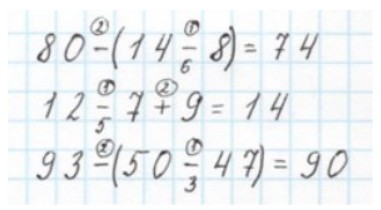 80 ②- (14 ①- 8) = 74
6
12 ①- 7 ②+ 9 = 14
5
93 ②- (50 ①- 47) = 90
3